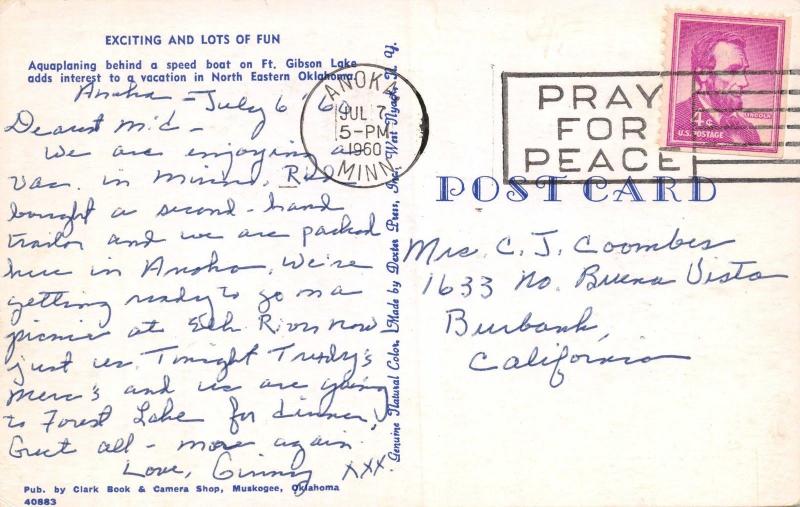 EXCITING AND LOTS OF FUN
Aquaplaning behind a speed boat on Ft. Gibson Lake
adds interest to a vacation in North Eastern Oklahoma.
Anoka - July 6 - 60
Dearest M.C. -
We are enjoying a
vac. in Minn.
bought a second-hand
trailor and we are packed
here in Anoka. We're
getting ready to go on a
picnic at Elk River now
just us. Tonight Trudy's
Merc's and us are going
to Forest Lake for dinner.
Greet all - more again
Love, Ginny xxx.
Pub. by Clark Book & Camera Shop, Muskogee, Oklahoma
40883
Genuine Natural Color. Made by Dexter Press, Inc. West Nyack, N. Y.
ANOKA
JUL 7
5-PM
1960
MINN
PRAY
FOR
PEACE
LINCOLN
4¢
U.S. POSTAGE
POST CARD
Mrs. C. J. Coombes
1633 No. Buena Vista
Burbank,
California